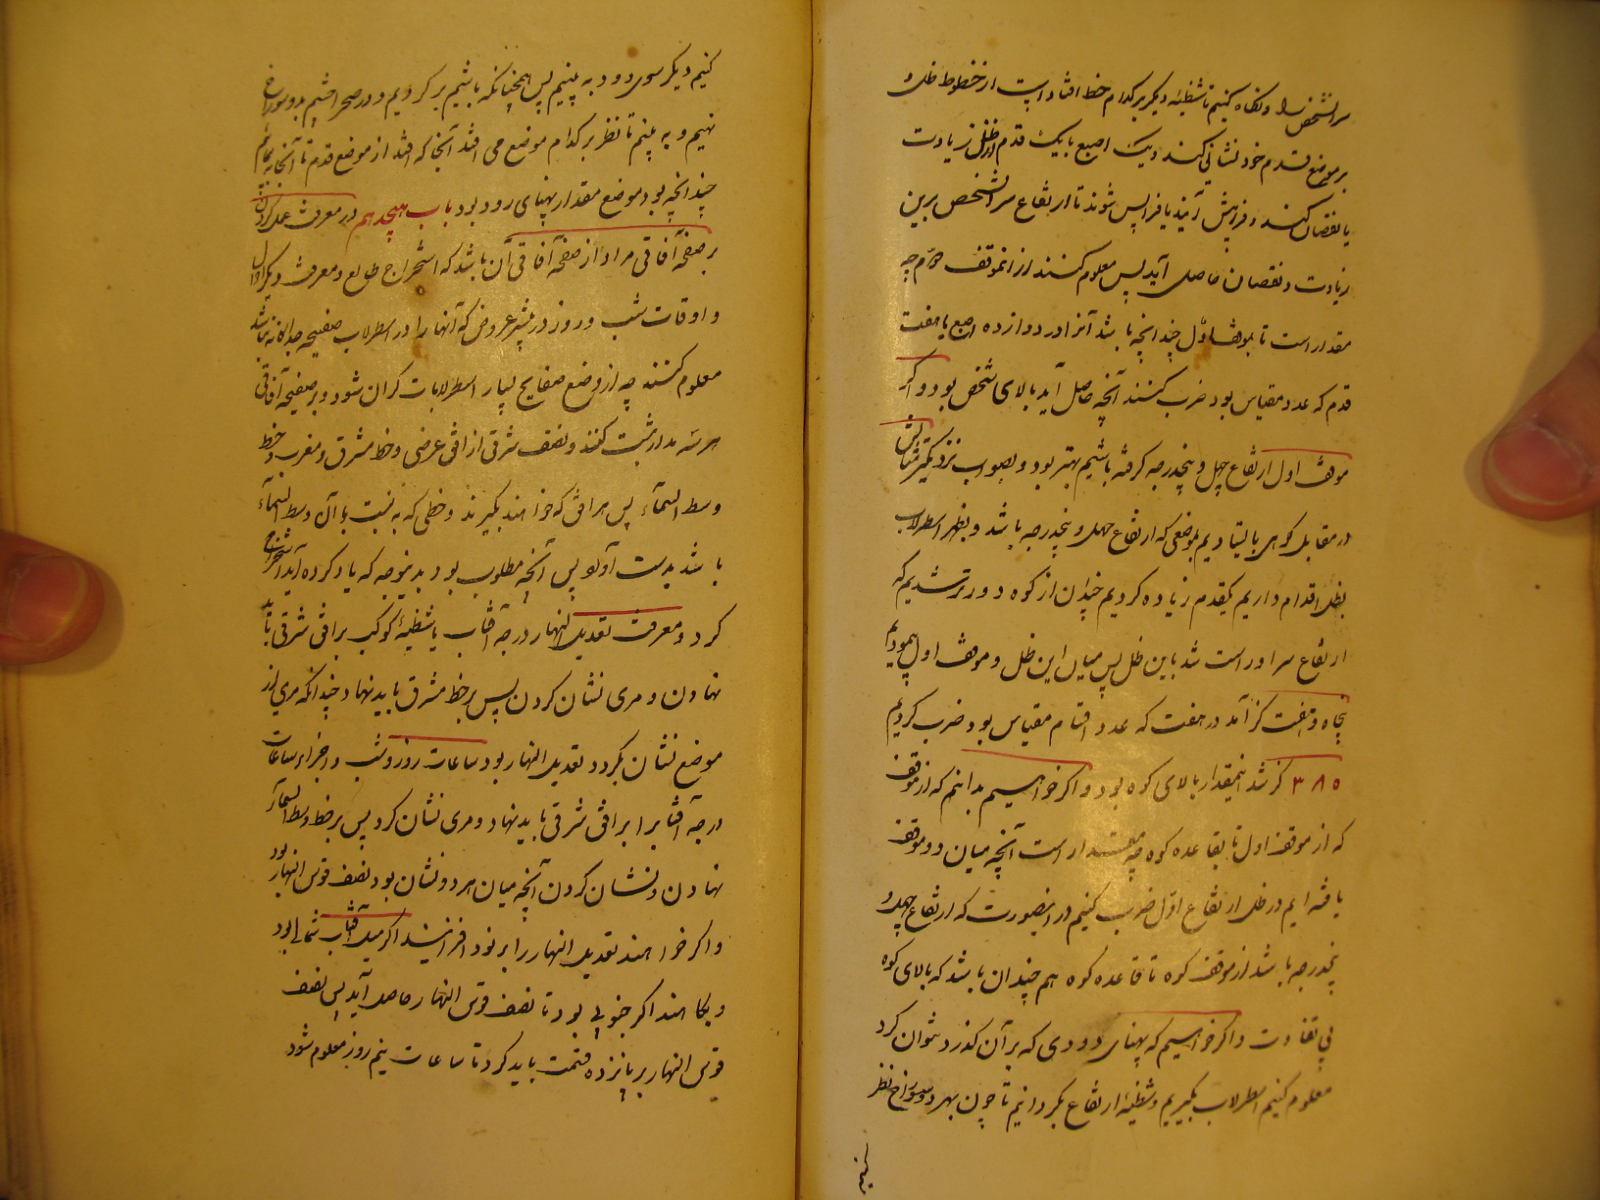 سر انشخص را و نکاه کنیم تا شظیهٔ دیکر بر کدام خط افتاد است از خطوط ظل و
بر موضع قدم خود نشانی کنند و یک اصبع یا یک قدم از ظل زیادت
یا نقصان کنند و فراپیش آیند یا فراپس شوند تا ارتفاع سر انشخص برین
زیادت و نقصان حاصل آید پس معلوم کنند از انموقف دوم چه
مقدار است تا بموقف اول چندانچه باشد آنرا در دوازده اصبع یا هفت
قدم که عدد مقیاس بود ضرب کنند آنچه حاصل آید بالای شخص بود و اکر
موقف اول ارتفاع چهل و پنجدرجه کرفته باشیم بهتر بود و بصواب نزدیکتر مثالش
در مقابل کوهی بایستادیم بموضعی که ارتفاع چهل و پنجدرجه باشد و بظهر اسطرلاب
بظل اقدام داریم یکقدم زیاده کردیم چندان از کوه دورتر شدیم که
ارتفاع سر او راست شد باین ظل پس میان این ظل و موقف اول پیمودیم
پنجاه و هفت کز آمد در هفت که عدد اقسام مقیاس بود ضرب کردیم
۳۸۵ کز شد اینمقدار بالای کوه بود و اکر خواهیم بدانیم که از موقف
که از موقف اول تا بقاعده کوه چه مقدار است آنچه میان دو موقف
یافته ایم در ظل ارتفاع اول ضرب کنیم در اینصورت که ارتفاع چهل و
پنجدرجه باشد از موقف کوه تا قاعده کوه هم چندان باشد که بالای کوه
بی تفاوت و اکر خواهیم که پهنای رودی که بر آن کذر نتوان کرد
معلوم کنیم اسطرلاب بکیریم و شظیهٔ ارتفاع بکردانیم تا چون بهر دو سوراخ نظر
کنیم
کنیم دیکر سوی رود به بینیم پس همچنانکه باشیم برکردیم و در صحرا افتیم بدو سوراخ
نهیم و به بینیم تا نظر بر کدام موضع می افتد آنجا که افتد از موضع قدم تا آنجا به پیمائیم
چندانچه بود موضع مقدار پهنای رود بود باب هیجدهم در معرفت عمل کردن
بر صفحه آفاقی مراد از صفحه آفاقی آن باشد که استخراج طالع و معرفت
و اوقات شب و روز در بیشتر عروض که آنها را در اسطرلاب صفیحه جداکانه نباشد
معلوم کنند چه از وضع صفایح بسیار اسطرلابات کران شود و بر صفیحه آفاقی
هر سه مدار ثبت کنند و نصف شرقی از افق عرضی و خط مشرق و مغرب و خط
وسط السمآء پس هر افقی که خواهند بکیرند و خطی که به نسبت با آن وسط السمآء
باشد بدست آورند پس آنچه مطلوب بود بدینوجه که یاد کرده آید استخراج
کرد و معرفت تعدیل النهار درجه آفتاب یا شظیهٔ کوکب بر افق شرقی باید
نهادن و مری نشان کردن پس بر خط مشرق باید نهاد چندانکه مری از
موضع نشان بکردد تعدیل النهار بود ساعات روز و شب و اجزاء ساعات
درجه آفتاب را بر افق شرقی باید نهاد و مری نشان کرد پس بر خط وسط السمآء
نهادن و نشان کردن آنچه میان هر دو نشان بود نصف قوس النهار بود
و اکر خواهند تعدیل النهار را بر نود افزایند اکر میل آفتاب شمالی بود
و بکاهند اکر جنوبی بود تا نصف قوس النهار حاصل آید پس نصف
قوس النهار بر پانزده قسمت باید کرد تا ساعات نیم روز معلوم شود